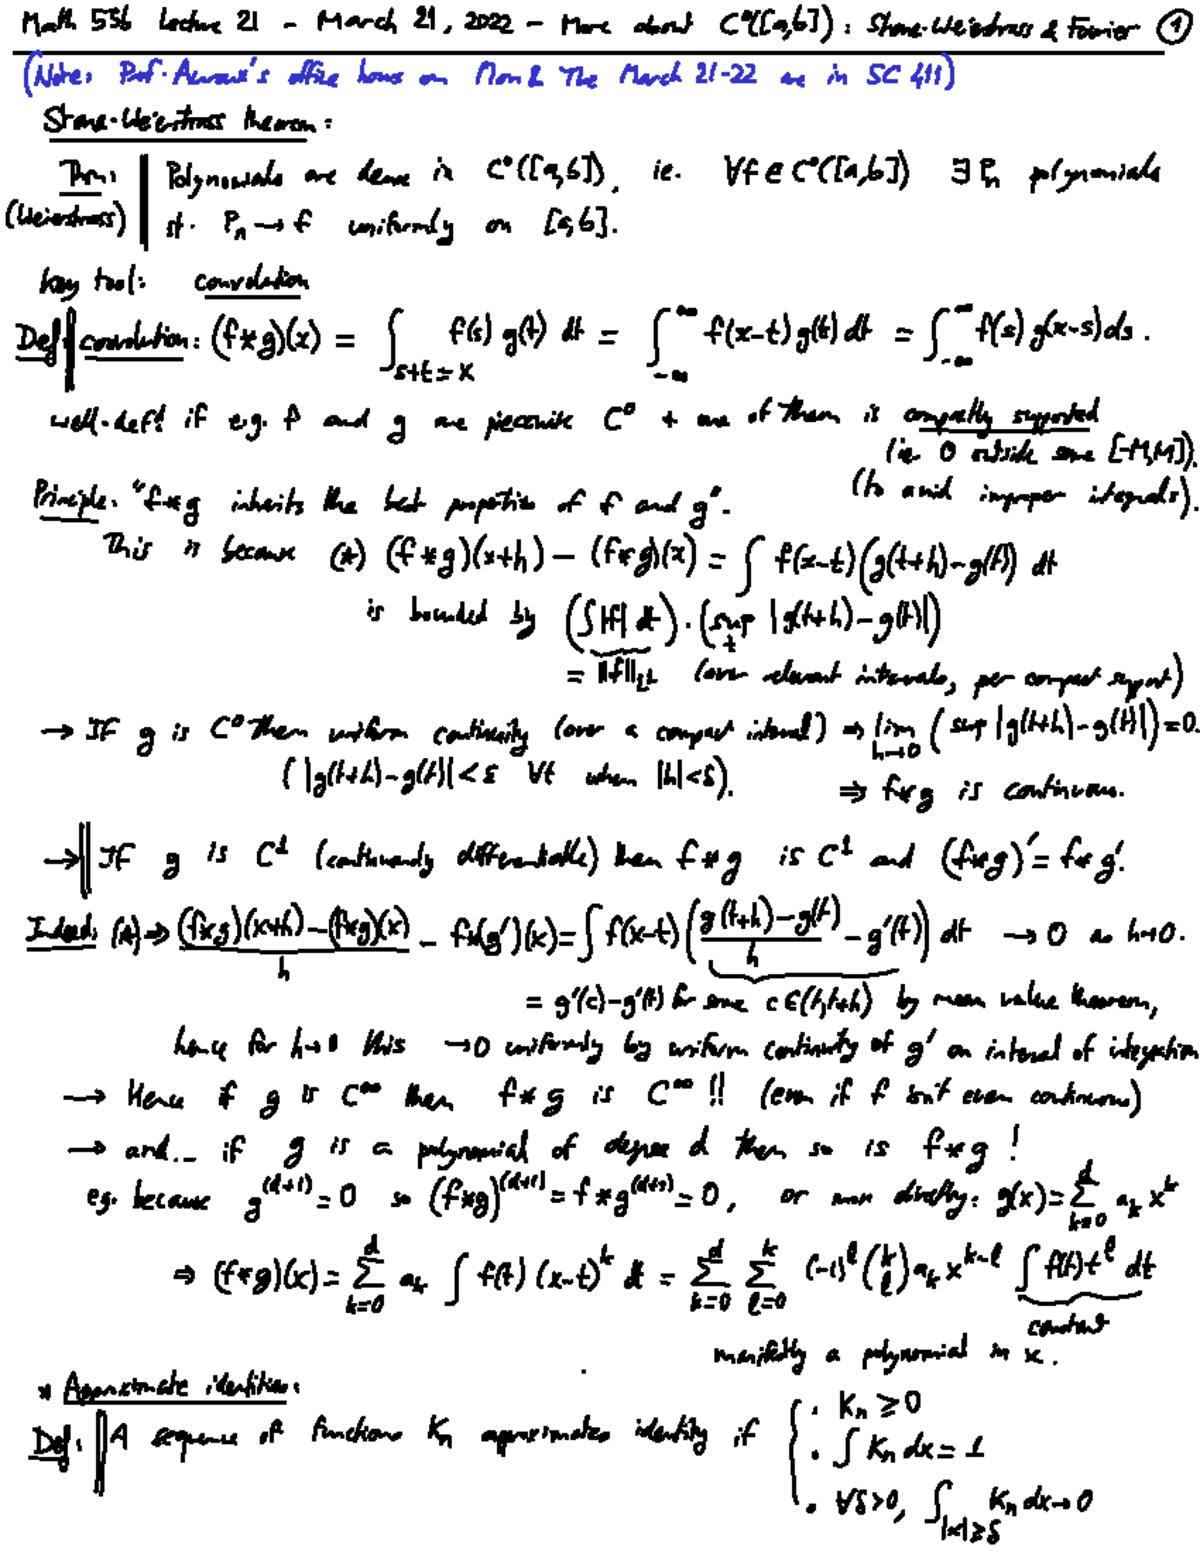 Math 55b Lecture 21 - March 21, 2022 - More about C⁰([a,b]): Stone-Weierstrass & Fourier ①
(Note: Prof. Auroux's office hours on Mon & Tue March 21-22 are in SC 411)
Stone-Weierstrass theorem:
Thm: Polynomials are dense in C⁰([a,b]), ie. ∀f ∈ C⁰([a,b]) ∃ Pₙ polynomials
(Weierstrass) st. Pₙ → f uniformly on [a,b].
Key tool: convolution
Def: convolution: (f*g)(x) = ∫_{s+t=x} f(s) g(t) dt = ∫_{-∞}^{∞} f(x-t) g(t) dt = ∫_{-∞}^{∞} f(s) g(x-s) ds.
well-def? if e.g. f and g are piecewise C⁰ + one of them is compactly supported
(ie. 0 outside some [-M,M]).
(to avoid improper integrals).
Principle: "f*g inherits the best properties of f and g".
This is because (*) (f*g)(x+h) - (f*g)(x) = ∫ f(x-t)(g(t+h)-g(t)) dt
is bounded by (∫|f| dt)·(sup_t |g(t+h)-g(t)|)
= ‖f‖_{L¹} (over relevant intervals, per compact support)
→ If g is C⁰ then uniform continuity (over a compact interval) ⇒ lim_{h→0} (sup |g(t+h)-g(t)|)=0.
(|g(t+h)-g(t)|<ε ∀t when |h|<δ). ⇒ f*g is continuous.
→ If g is C¹ (continuously differentiable) then f*g is C¹ and (f*g)' = f*g'.
Indeed: (*) ⇒ ((f*g)(x+h)-(f*g)(x))/h - f*(g')(x) = ∫ f(x-t) ((g(t+h)-g(t))/h - g'(t)) dt → 0 as h→0.
= g'(c)-g'(t) for some c∈(t,t+h) by mean value theorem,
hence for h→0 this →0 uniformly by uniform continuity of g' on interval of integration
→ Hence if g is C^∞ then f*g is C^∞ !! (even if f isn't even continuous)
→ and... if g is a polynomial of degree d then so is f*g !
eg. because g^{(d+1)} = 0 so (f*g)^{(d+1)} = f*g^{(d+1)} = 0, or more directly: g(x) = Σ_{k=0}^{d} a_k x^k
⇒ (f*g)(x) = Σ_{k=0}^{d} a_k ∫ f(t) (x-t)^k dt = Σ_{k=0}^{d} Σ_{ℓ=0}^{k} (-1)^ℓ (k ℓ) a_k x^{k-ℓ} ∫ f(t) t^ℓ dt
constant
manifestly a polynomial in x.
* Approximate identities:
Def: A sequence of functions Kₙ approximates identity if { · Kₙ ≥ 0
· ∫ Kₙ dx = 1
· ∀δ>0, ∫_{|x|≥δ} Kₙ dx → 0